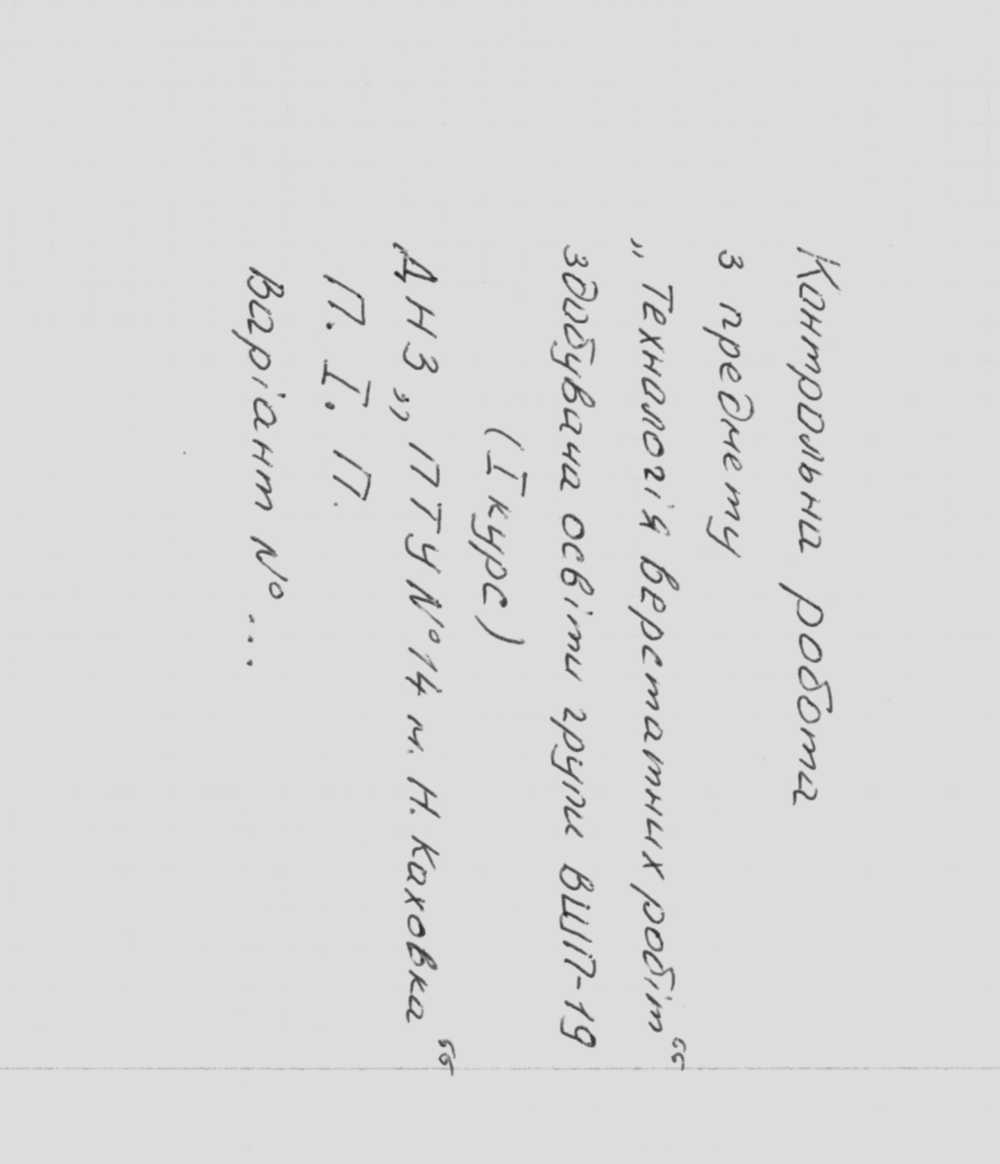 Контрольна робота
з предмету
„Технологія верстатних робіт“
здобувача освіти групи ВШП-19
(I курс)
ДНЗ „ПТУ №14 м. Н. Каховка“
П. І. П.
Варіант № ...